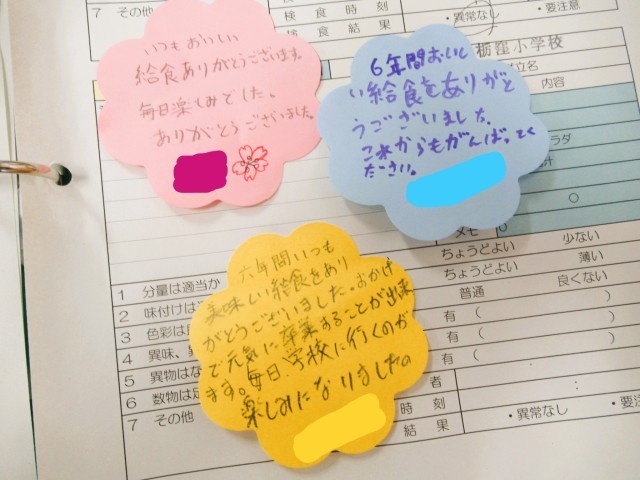 7 その他
検食時刻
検食結果
・異常なし ・要注意
いつもおいしい
給食ありがとうございます。
毎日楽しみでした。
ありがとうございました。
栃窪小学校
6年間おいし
い給食をありがと
うございました
これからもがんばってく
ださい。
内容
六年間いつも
美味しい給食をあり
がとうございました。おかげ
で元気に卒業することが出来
ます。毎日、学校に行くのが
楽しみになりました。
ちょうどよい 少ない
ちょうどよい 薄い
普通 良くない
有 (
有 ( )
有 ( )
1 分量は適当か
2 味付けは
3 色彩は
4 異味、
5 異物はな
6 数物は
7 その他
者
時刻
結果
・異常なし ・要注